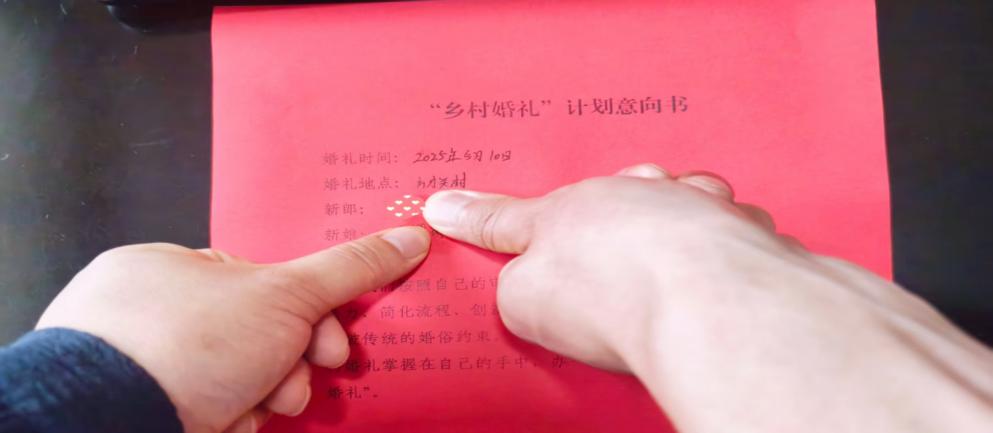 “乡村婚礼”计划意向书
婚礼时间：2025年5月10日
婚礼地点：
新郎：
新娘：
按照自己的
、简化流程、创
传统的婚俗约束。
婚礼掌握在自己的手中，办
婚礼”。